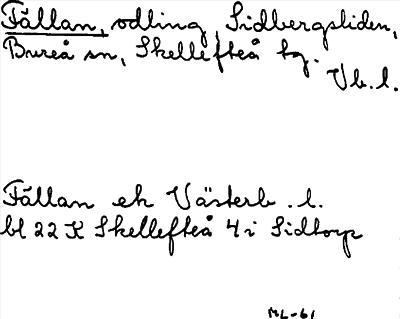 Fällan, odling, Sidbergsliden,
Bureå sn, Skellefteå tg.
Vb. l.
Fällan ek Västerb. l.
bl 22 K Skellefteå 4 i Sidtorp
ML-61